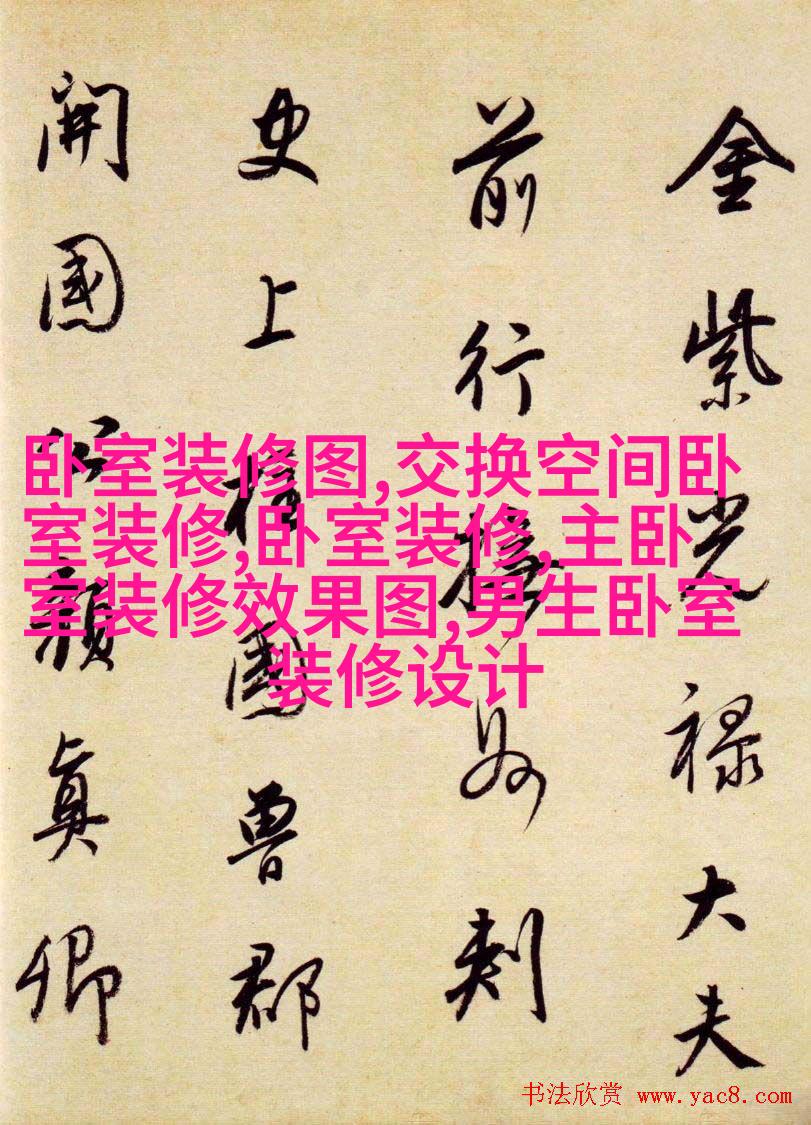 金紫光禄大夫
前行撫州刺
史上柱國魯郡
開國公顏真卿
卧室装修图,交换空间卧
室装修,卧室装修,主卧
室装修效果图,男生卧室
装修设计
书法欣赏 www.yac8.com